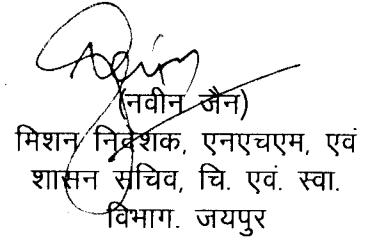 (नवीन जैन)
मिशन निदेशक, एनएचएम, एवं
शासन सचिव, चि. एवं. स्वा.
विभाग. जयपुर